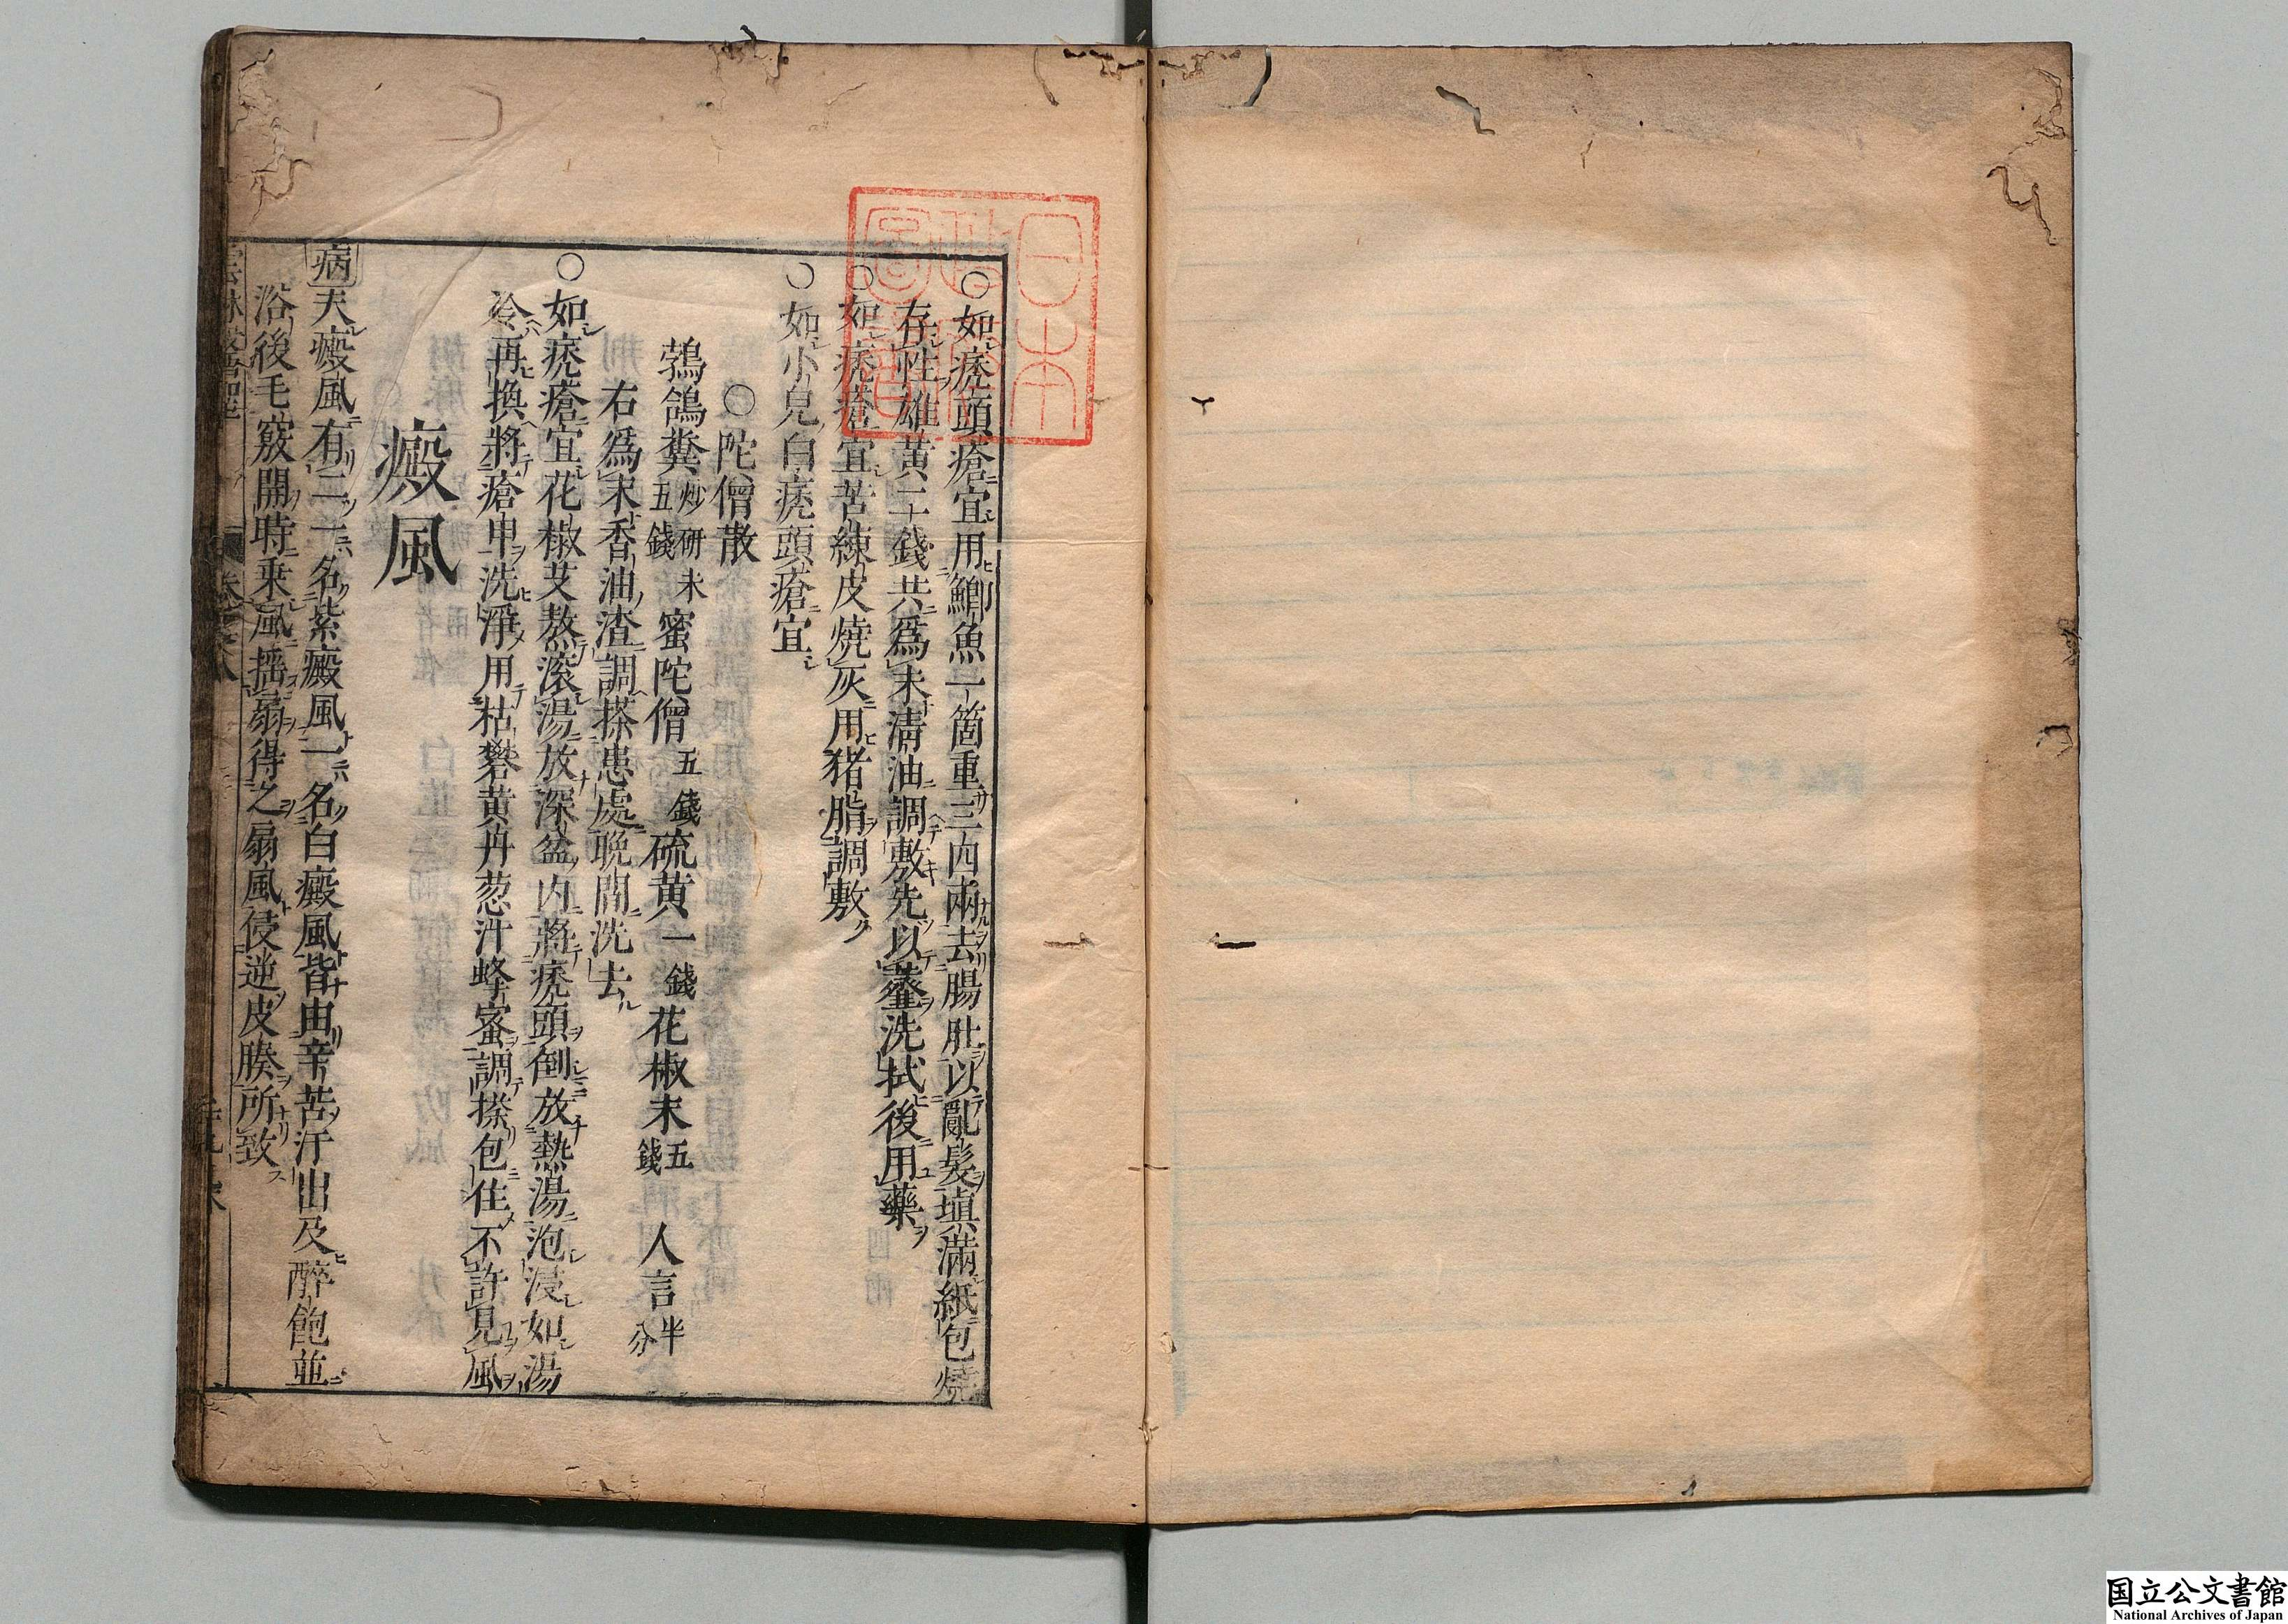 ○如癩頭瘡宜用鯽魚一箇重三四兩去腸肚以亂髮塡滿紙包燒
存性雄黃二錢共爲末淸油調敷先以虀洗拭後用藥
○如禿瘡宜苦練皮燒灰用猪脂調敷
○如小兒白禿頭瘡宜
○陀僧散
鵓鴿糞炒研末五錢 蜜陀僧五錢 硫黄一錢 花椒末五錢 人言半分
右爲末香油渣調搽患處晩間洗去
○如禿瘡宜花椒艾熬滚湯放深盆内將禿頭倒放熱湯泡浸如湯
冷再換將瘡甲洗淨用枯礬黄丹葱汁蜂蜜調搽包住不許見風
癜風
病夫癜風有二一名紫癜風一名白癜風皆由辛苦汗出及醉飽並
浴後毛竅開時乗風揺扇得之扇風侵逆皮腠所致
日本
政
圖書
国立公文書館
National Archives of Japan